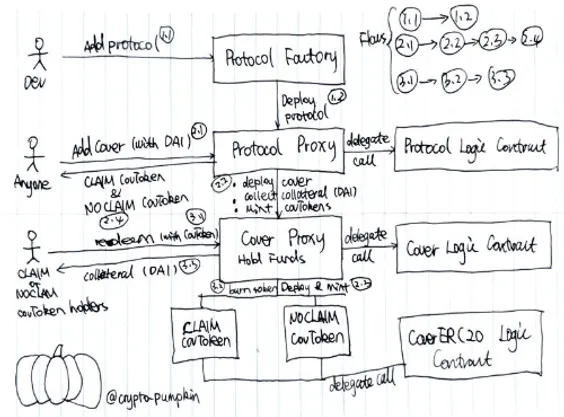 Add protocol 1.1
Dev
Protocol Factory
Flows
1.1 → 1.2
2.1 → 2.2 → 2.3 → 2.4
3.1 → 3.2 → 3.3
Deploy 1.2
protocol
Add Cover (with DAI) 2.1
Anyone
CLAIM CovToken
&
NOCLAIM CovToken
2.4
Protocol Proxy
delegate
call
Protocol Logic Contract
2.2
• deploy cover
• collect collateral (DAI)
• mint covTokens
redeem (with CovToken) 3.1
collateral (DAI) 3.3
CLAIM
or
NOCLAIM
covToken holders
Cover Proxy
Hold Funds
delegate
call
Cover Logic Contract
3.2 burn token Deploy & mint 2.3
CLAIM
CovToken
NOCLAIM
CovToken
CoverERC20 Logic
Contract
delegate call
@crypto-pumpkin